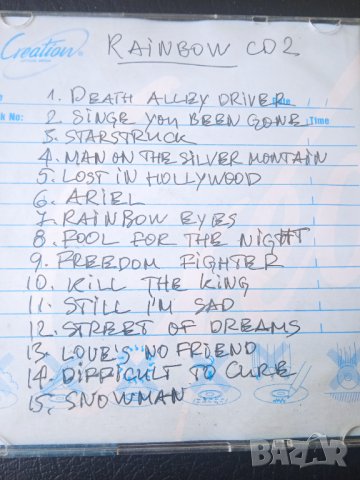 Creation
RAINBOW CD2
1. DEATH ALLEY DRIVER
2. SINGE YOU BEEN GONE
k No:
Time
3. STARSTRUCK
4. MAN ON THE SILVER MONTAIN
5. LOST IN HOLLYWOOD
6. ARIEL
7. RAINBOW EYES
8. FOOL FOR THE NIGHT
9. FREEDOM FIGHTER
10. KILL THE KING
11. STILL I'M SAD
12. STREET OF DREAMS
13. LOVE'S NO FRIEND
14. DIFFICULT TO CURE
15. SNOWMAN
BAZAR